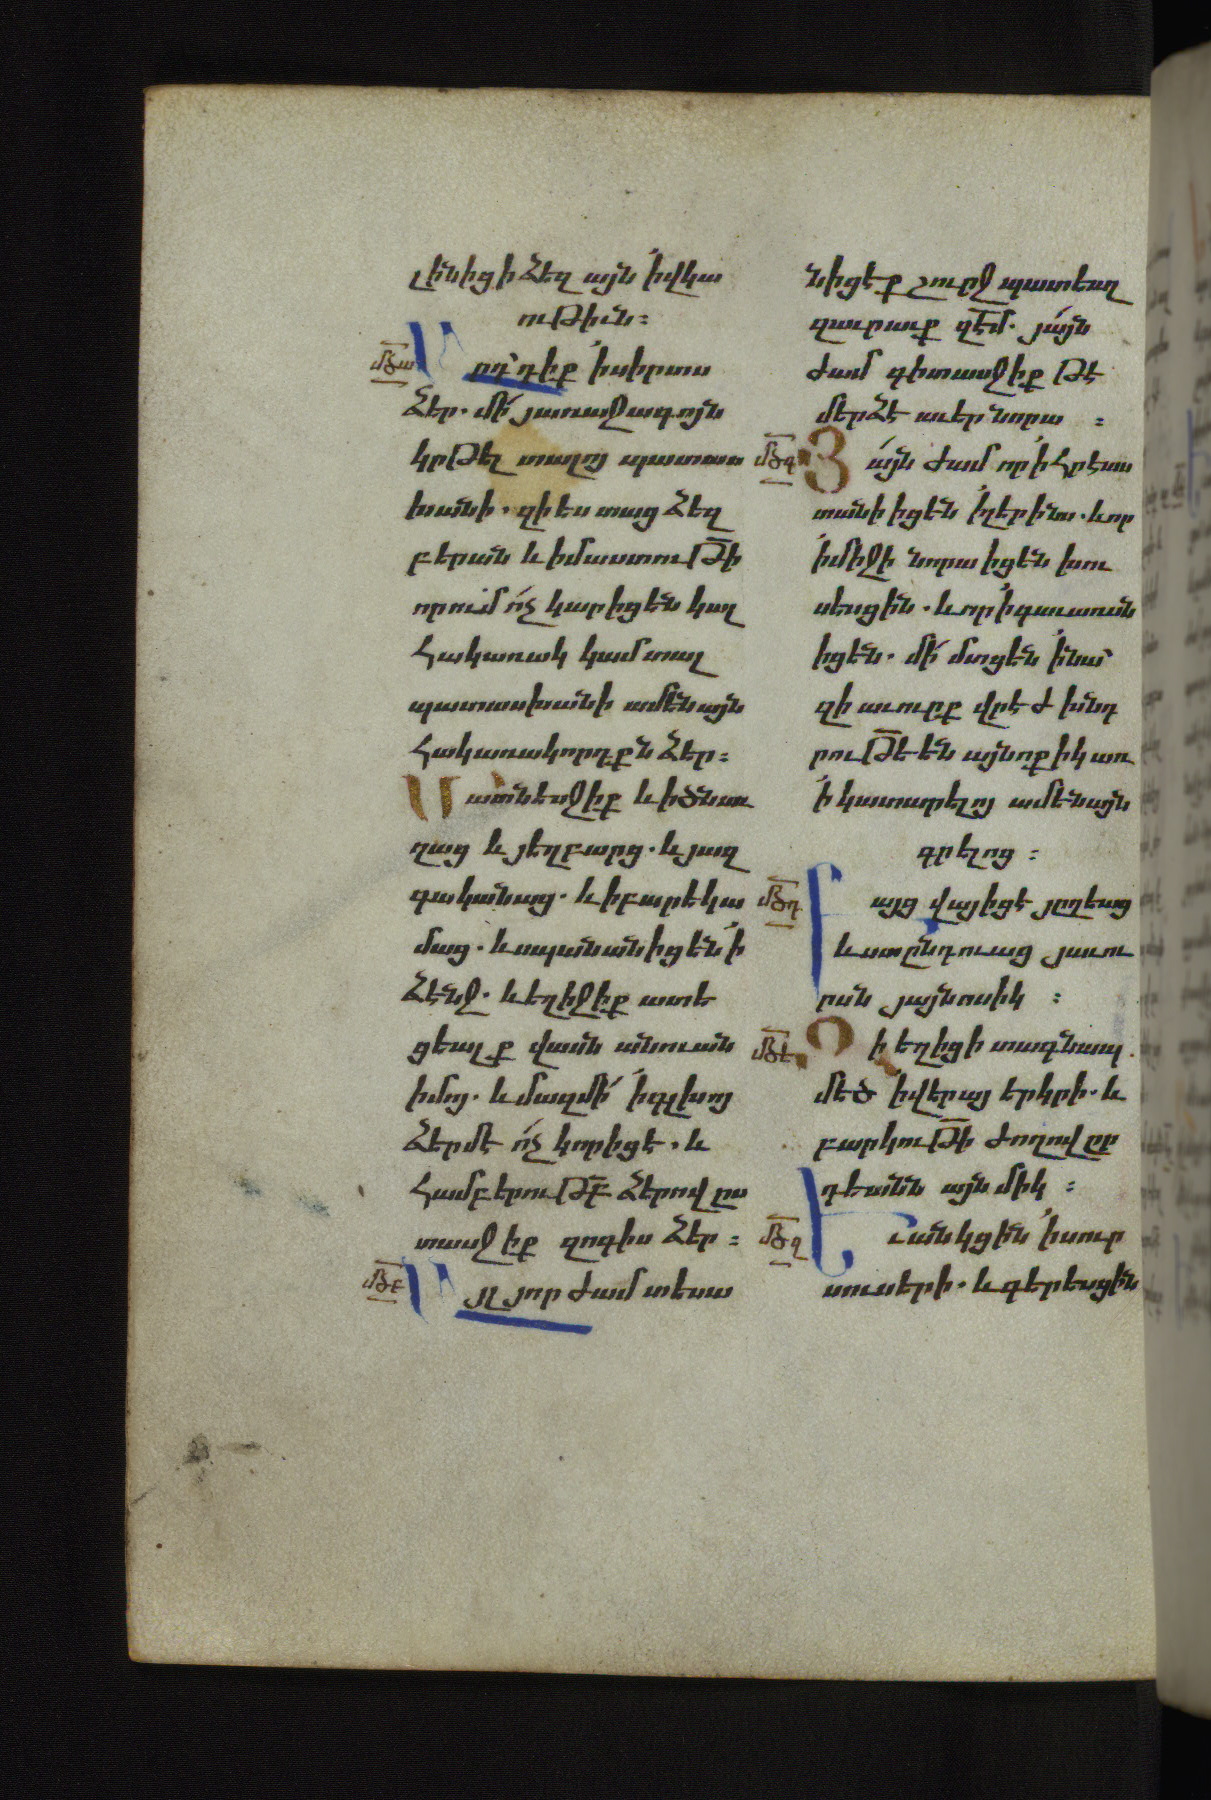 լինիցի ձեզ այն ՛ի վկա
ութիւն։
մծա Ա րդ՝ դիք ՛ի սիրտս
ձեր. մի́ յառաջագոյն
կրթել տալոյ պատաս
խանի. զի ես տաց ձեզ
բերան և իմաստութի
որում ո́չ կարիցեն կալ
հակառակ կամ տալ
պատասխանի ամենայն
հակառակորդքն ձեր։
Մ ատնեսջիք և ի ծնաւ
ղաց և յեղբարց. և յազ
գականաց. և ի բարեկա
մաց. և սպանանիցեն ՛ի
ձէնջ. և եղիջիք ատե
ցեալք վասն անուան
իմոյ. և մազ մի́ ՛ի գլխոյ
ձերմէ ո́չ կորիցէ. և
համբերութբ ձերով ըս
տասջիք զոգիս ձեր։
մծբ Ա յլ յորժամ տեսա
նիցէք շուրջ պատեալ
զաւրաւք զէմ. յա́յն
ժամ գիտասջիք թէ
մերձէ աւեր նորա ։
մծգ Յ ա́յն ժամ որ ՛ի հրէաս
տանի իցեն ՛ի լերինս. և որ
՛ի միջի նորա իցեն խու
սեսցին. և որ ՛ի գաւառան
իցեն. մի́ մտցեն ՛ի նա՝
զի աւուրք վրէժխնդ
րութե են այնոքիկ առ
՛ի կատարելոյ ամենայն
գրելոց ։
մծդ Բ այց վայ իցէ յղեաց
և ստընդուաց յաւու
րսն յայնոսիկ ։
մծե Զ ի եղիցի տագնապ
մեծ ՛ի վերայ երկրի. և
բարկութի ժողովըր
դեանն այնմիկ ։
մծզ Ե ւ անկցին ՛ի սուր
սուսերի. և գերեսցին